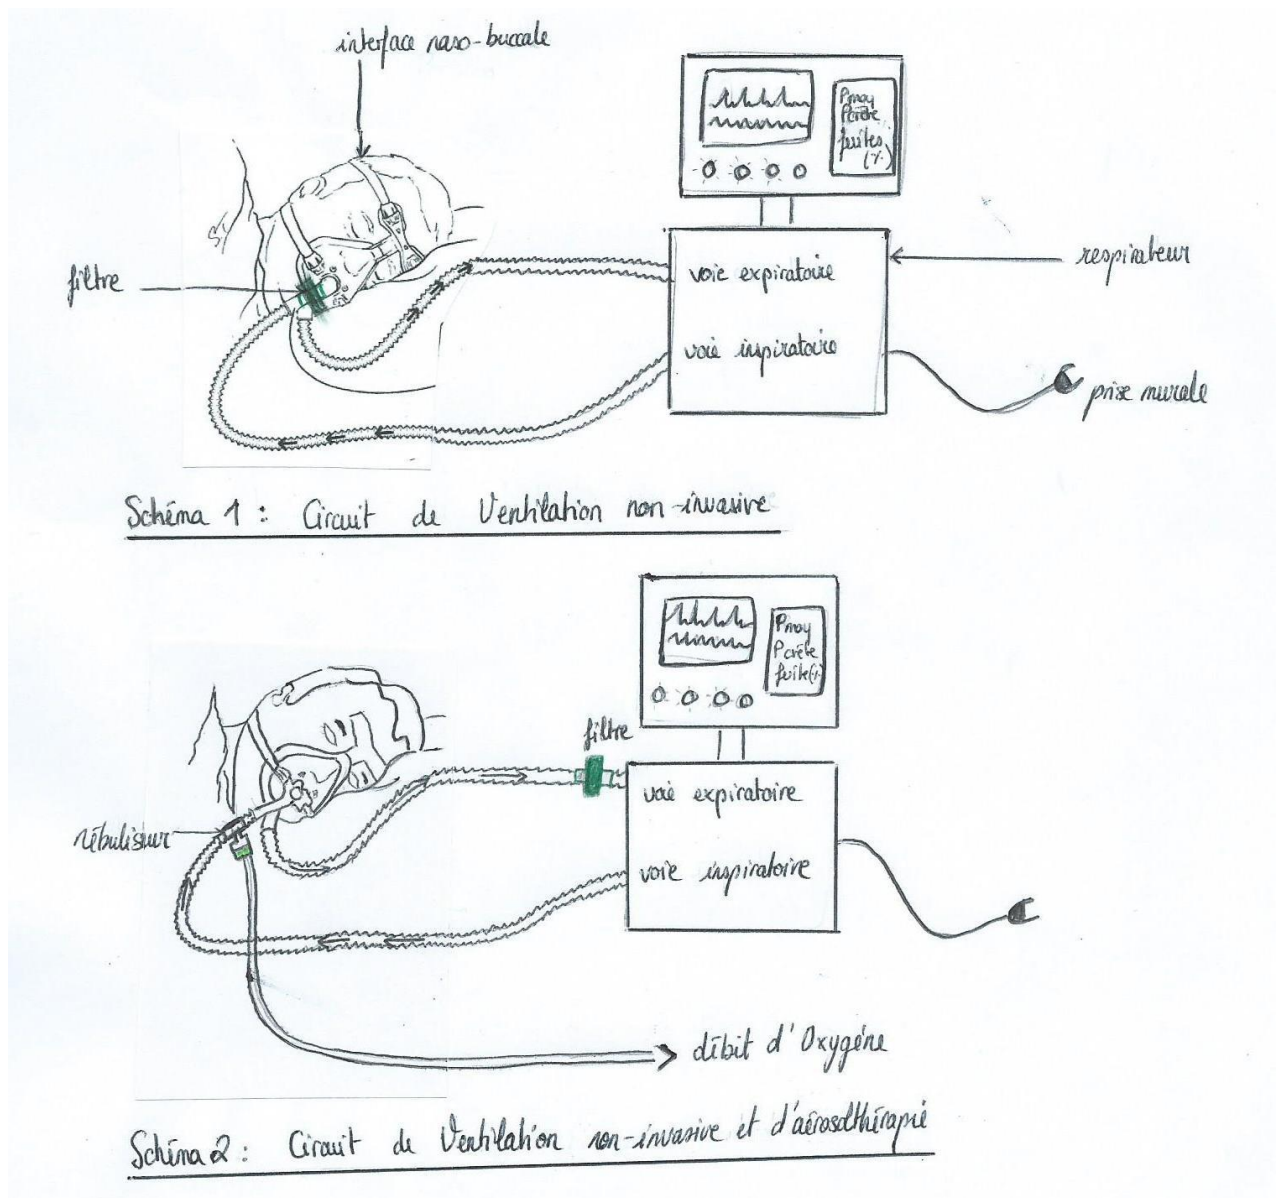 interface naso-buccale
Pmoy
Pcrête
fuites
(%)
filtre
voie expiratoire
respirateur
voie inspiratoire
prise murale
Schéma 1 : Circuit de Ventilation non-invasive
Pmoy
Pcrête
fuite(%)
filtre
voie expiratoire
nébuliseur
voie inspiratoire
débit d'Oxygène
Schéma 2 : Circuit de Ventilation non-invasive et d'aérosolthérapie